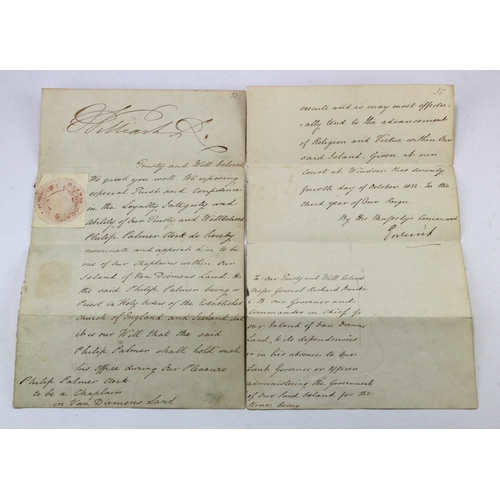 William R.
Trusty and Well beloved
We greet you well. We reposing
especial Trust and Confidence
in the Loyalty Integrity and
ability of Our Trusty and Wellbeloved
Philip Palmer Clerk do hereby
nominate and appoint him to be
one of Our Chaplains within Our
Island of Van Diemens Land He
the said Philip Palmer being a
Priest in Holy Orders of the Established
Church of England and Ireland and
it is Our Will that the said
Philip Palmer shall hold such
his office during Our Pleasure
Philip Palmer Clerk
to be a Chaplain
in Van Diemens Land
35
execute and as may most effectu-
ally tend to the advancement
of Religion and Virtue within Our
said Island. Given at our
Court at Windsor this twenty
fourth day of October 1832 In the
third year of Our Reign
By His Majesty's Command
Goderich
To Our Trusty and Well beloved
Major General Richard
C. B. our Governor and
Commander in Chief of
our Island of Van Diemens
Land, & its dependencies
or in his absence to Our
Lieut Governor or Officer
administering the Government
of Our said Island for the
time being